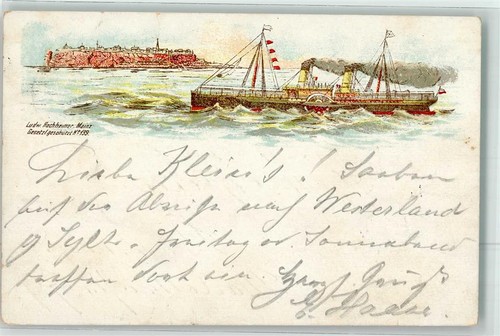 Ludw. Hochheimer. Mainz
Gesetzl geschützt Nº 139
Liebe Kleins's! Soeben
auf der Abreise nach Westerland
a/Sylt. Freitag od Sonnabend
treffen dort ein. Herzl Gruß
E. Haase